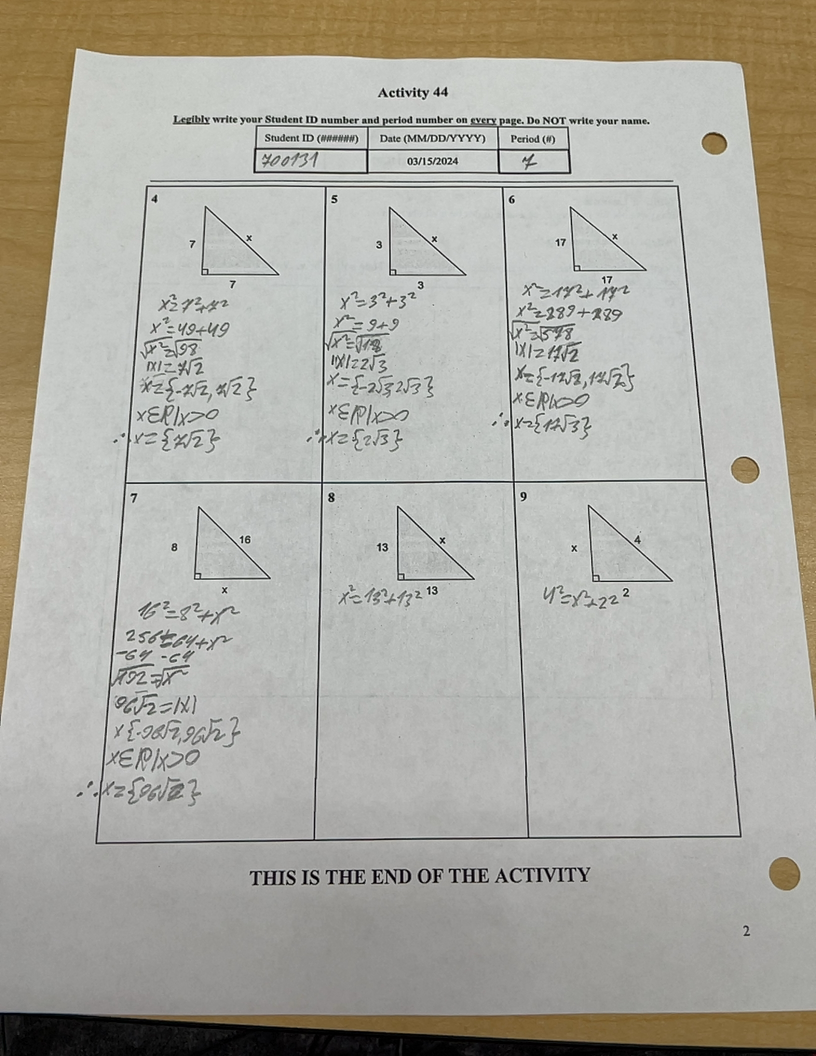 Activity 44
Legibly write your Student ID number and period number on every page. Do NOT write your name.
Student ID (######) Date (MM/DD/YYYY) Period (#)
700131 03/15/2024 7
4
7
x
7
x²=7²+7²
x²=49+49
√x²=√98
|x|=7√2
x={-7√2, 7√2}
xƐℝ|x>0
∴x={7√2}
5
3
x
3
x²=3²+3²
x²=9+9
√x²=√18
|x|=2√3
x={-2√3, 2√3}
xƐℝ|x>0
∴x={2√3}
6
17
x
17
x²=17²+17²
x²=289+289
√x²=√578
|x|=17√2
x={-17√2, 17√2}
xƐℝ|x>0
∴x={17√3}
7
8
16
x
16²=8²+x²
256=64+x²
-64 -64
√192=√x²
96√2=|x|
x{-96√2, 96√2}
xƐℝ|x>0
∴x={96√2}
8
13
x
13
x²=13²+13²
9
x
4
2
4²=x²+2²
THIS IS THE END OF THE ACTIVITY
2